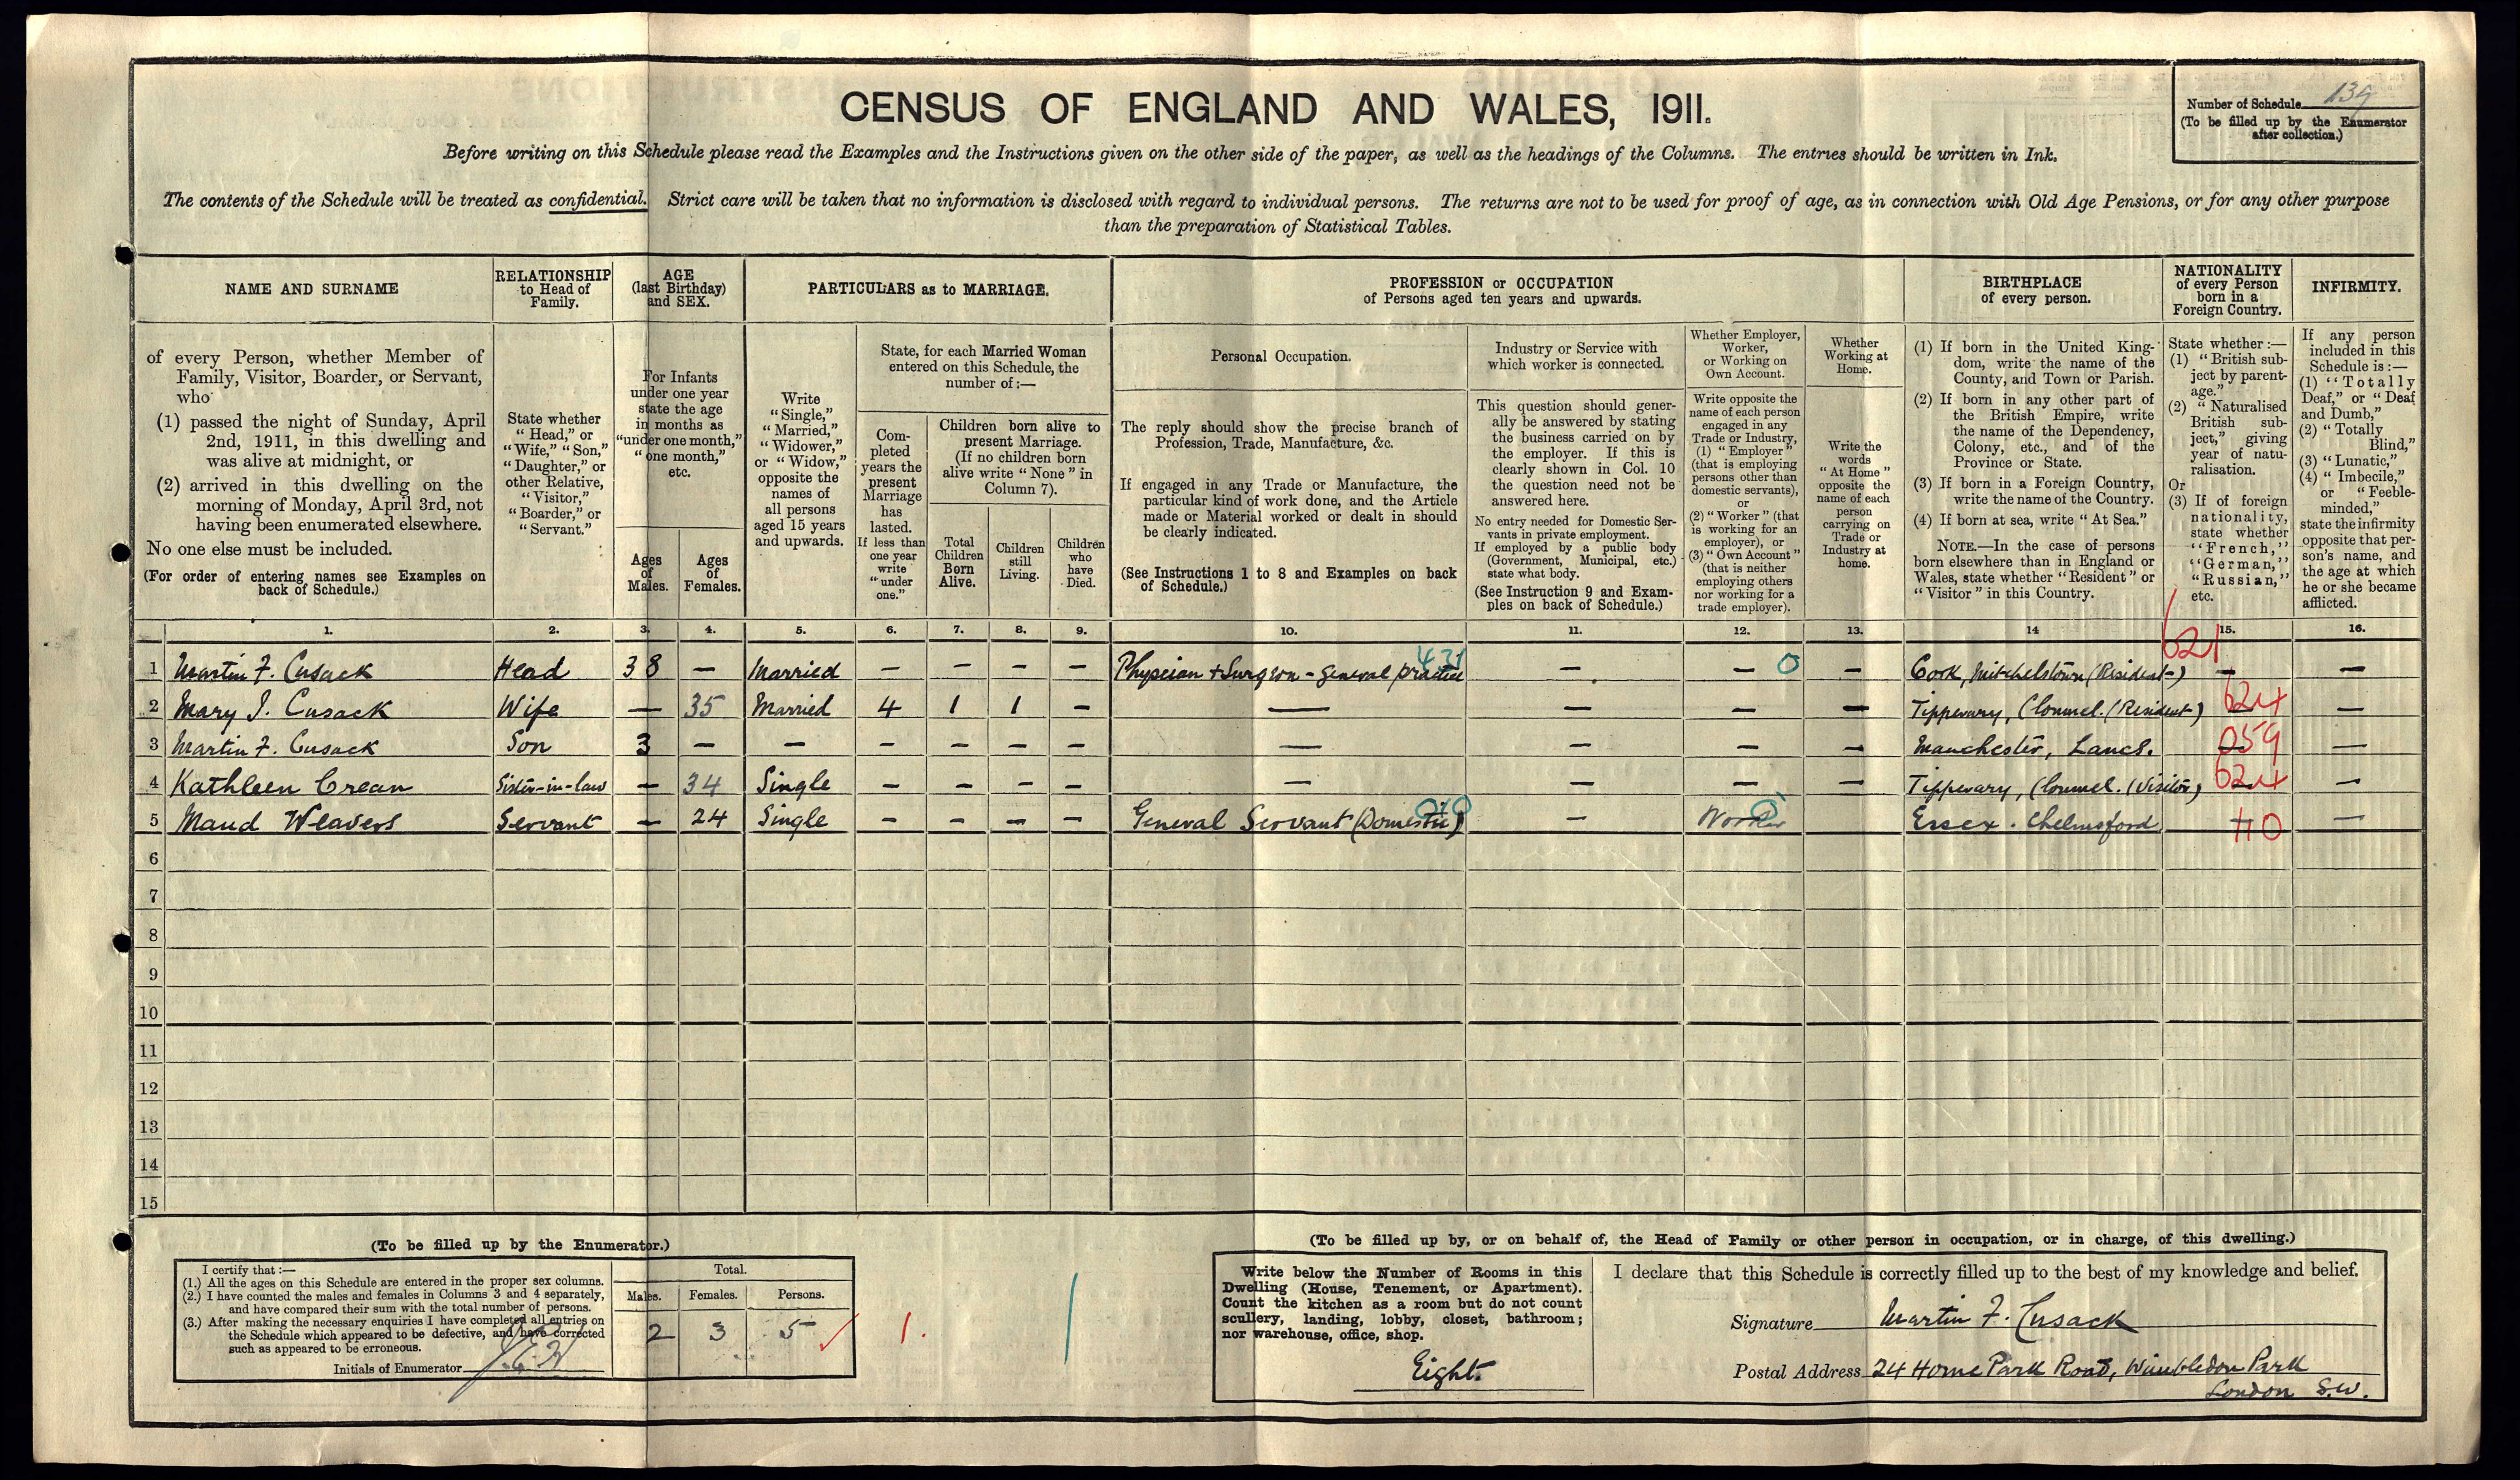 CENSUS OF ENGLAND AND WALES, 1911.
Number of Schedule 139
(To be filled up by the Enumerator
after collection.)
Before writing on this Schedule please read the Examples and the Instructions given on the other side of the paper, as well as the headings of the Columns. The entries should be written in Ink.
The contents of the Schedule will be treated as confidential. Strict care will be taken that no information is disclosed with regard to individual persons. The returns are not to be used for proof of age, as in connection with Old Age Pensions, or for any other purpose
than the preparation of Statistical Tables.
NAME AND SURNAME
of every Person, whether Member of
Family, Visitor, Boarder, or Servant,
who
(1) passed the night of Sunday, April
2nd, 1911, in this dwelling and
was alive at midnight, or
(2) arrived in this dwelling on the
morning of Monday, April 3rd, not
having been enumerated elsewhere.
No one else must be included.
(For order of entering names see Examples on
back of Schedule.)
RELATIONSHIP
to Head of
Family.
State whether
"Head," or
"Wife," "Son,"
"Daughter," or
other Relative,
"Visitor,"
"Boarder," or
"Servant."
AGE
(last Birthday)
and SEX.
For Infants
under one year
state the age
in months as
"under one month,"
"one month,"
etc.
Ages
of
Males.
Ages
of
Females.
PARTICULARS as to MARRIAGE.
Write
"Single,"
"Married,"
"Widower,"
or "Widow,"
opposite the
names of
all persons
aged 15 years
and upwards.
State, for each Married Woman
entered on this Schedule, the
number of:—
Com-
pleted
years the
present
Marriage
has
lasted.
If less than
one year
write
"under
one."
Children born alive to
present Marriage.
(If no children born
alive write "None" in
Column 7).
Total
Children
Born
Alive.
Children
still
Living.
Children
who
have
Died.
PROFESSION or OCCUPATION
of Persons aged ten years and upwards.
Personal Occupation.
The reply should show the precise branch of
Profession, Trade, Manufacture, &c.
If engaged in any Trade or Manufacture, the
particular kind of work done, and the Article
made or Material worked or dealt in should
be clearly indicated.
(See Instructions 1 to 8 and Examples on back
of Schedule.)
Industry or Service with
which worker is connected.
This question should gener-
ally be answered by stating
the business carried on by
the employer. If this is
clearly shown in Col. 10
the question need not be
answered here.
No entry needed for Domestic Ser-
vants in private employment.
If employed by a public body
(Government, Municipal, etc.)
state what body.
(See Instruction 9 and Exam-
ples on back of Schedule.)
Whether Employer,
Worker,
or Working on
Own Account.
Write opposite the
name of each person
engaged in any
Trade or Industry,
(1) "Employer"
(that is employing
persons other than
domestic servants),
or
(2) "Worker" (that
is working for an
employer), or
(3) "Own Account"
(that is neither
employing others
nor working for a
trade employer).
Whether
Working at
Home.
Write the
words
"At Home"
opposite the
name of each
person
carrying on
Trade or
Industry at
home.
BIRTHPLACE
of every person.
(1) If born in the United King-
dom, write the name of the
County, and Town or Parish.
(2) If born in any other part of
the British Empire, write
the name of the Dependency,
Colony, etc., and of the
Province or State.
(3) If born in a Foreign Country,
write the name of the Country.
(4) If born at sea, write "At Sea."
NOTE.—In the case of persons
born elsewhere than in England or
Wales, state whether "Resident" or
"Visitor" in this Country.
NATIONALITY
of every Person
born in a
Foreign Country.
State whether :—
(1) "British sub-
ject by parent-
age."
(2) "Naturalised
British sub-
ject," giving
year of natu-
ralisation.
Or
(3) If of foreign
nationality,
state whether
"French,"
"German,"
"Russian,"
etc.
INFIRMITY.
If any person
included in this
Schedule is:—
(1) "Totally
Deaf," or "Deaf
and Dumb,"
(2) "Totally
Blind,"
(3) "Lunatic,"
(4) "Imbecile,"
or "Feeble-
minded,"
state the infirmity
opposite that per-
son's name, and
the age at which
he or she became
afflicted.
1. 2. 3. 4. 5. 6. 7. 8. 9. 10. 11. 12. 13. 14 15. 16.
1 Martin F. Cusack Head 38 — Married — — — — Physician + Surgeon - general practice 431 — — 0 — Cork, Mitchelstown (Resident-) 621 — —
2 Mary J. Cusack Wife — 35 Married 4 1 1 — — — — — Tipperary, Clonmel. (Resident) 624 —
3 Martin F. Cusack Son 3 — — — — — — — — — — Manchester, Lancs. 059 —
4 Kathleen Crean Sister-in-law — 34 Single — — — — — — — — Tipperary, Clonmel. (Visitor) 624 —
5 Maud Weavers Servant — 24 Single — — — — General Servant (Domestic) — Worker 0 Essex. Chelmsford 110 —
6
7
8
9
10
11
12
13
14
15
(To be filled up by the Enumerator.)
I certify that:—
(1.) All the ages on this Schedule are entered in the proper sex columns.
(2.) I have counted the males and females in Columns 3 and 4 separately,
and have compared their sum with the total number of persons.
(3.) After making the necessary enquiries I have completed all entries on
the Schedule which appeared to be defective, and have corrected
such as appeared to be erroneous.
Initials of Enumerator
Total.
Males. Females. Persons.
2 3 5
1.
(To be filled up by, or on behalf of, the Head of Family or other person in occupation, or in charge, of this dwelling.)
Write below the Number of Rooms in this
Dwelling (House, Tenement, or Apartment).
Count the kitchen as a room but do not count
scullery, landing, lobby, closet, bathroom;
nor warehouse, office, shop.
Eight.
I declare that this Schedule is correctly filled up to the best of my knowledge and belief.
Signature Martin F. Cusack
Postal Address 24 Home Park Road, Wimbledon Park
London S.W.